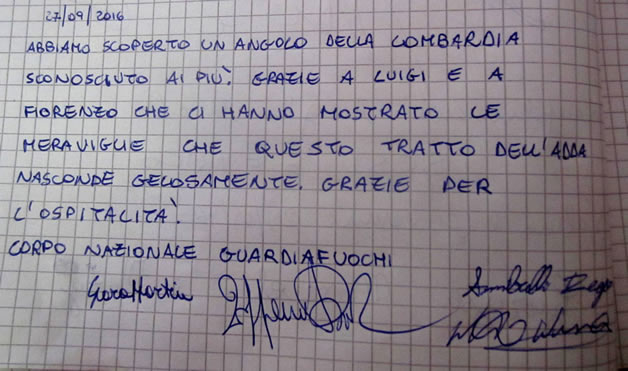 27/09/2016
ABBIAMO SCOPERTO UN ANGOLO DELLA LOMBARDIA
SCONOSCIUTO AI PIÙ. GRAZIE A LUIGI E A
FIORENZO CHE CI HANNO MOSTRATO LE
MERAVIGLIE CHE QUESTO TRATTO DELL'ADDA
NASCONDE GELOSAMENTE. GRAZIE PER
L'OSPITALITÀ.
CORPO NAZIONALE GUARDIAFUOCHI